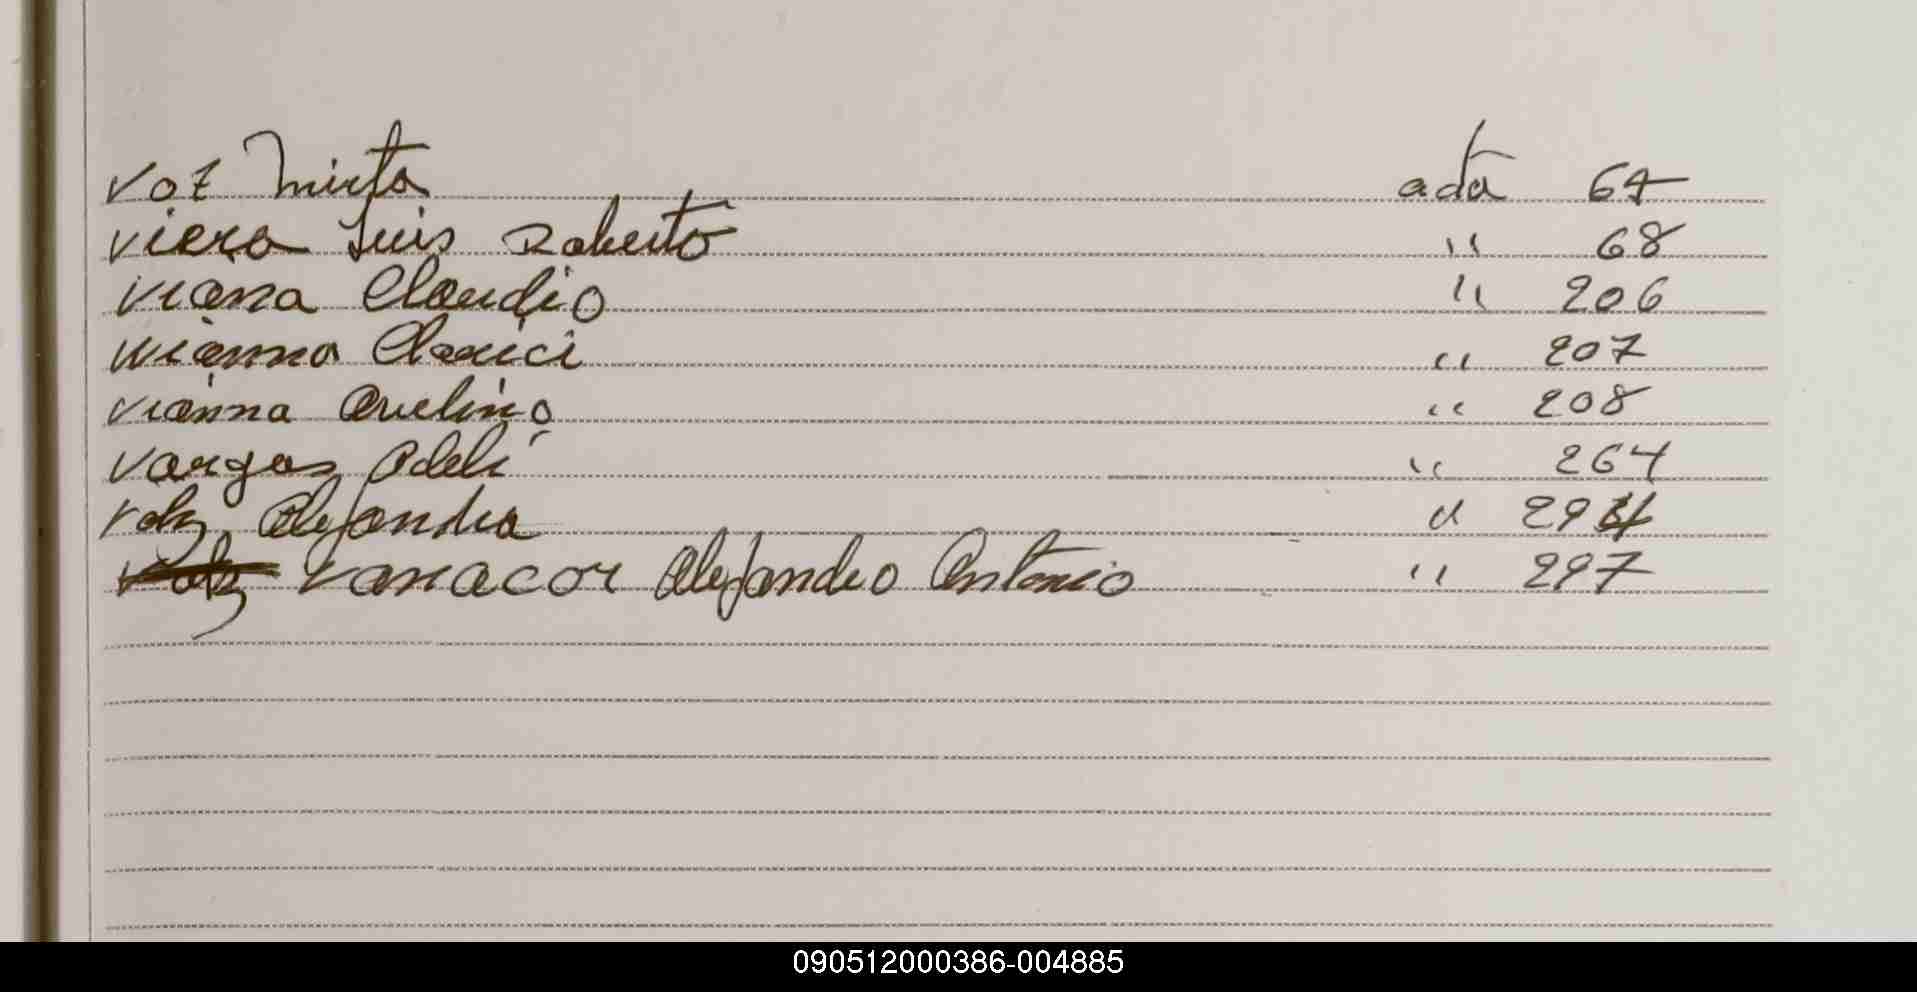 Vot Mirta acta 67
Viera Luis Roberto " 68
Viana Claudio " 206
Vianna Clarici " 207
Vianna Avelino " 208
Vargas Adeli " 264
Alejandra " 294
Vanacor Alejandro Antonio " 297
090512000386-004885